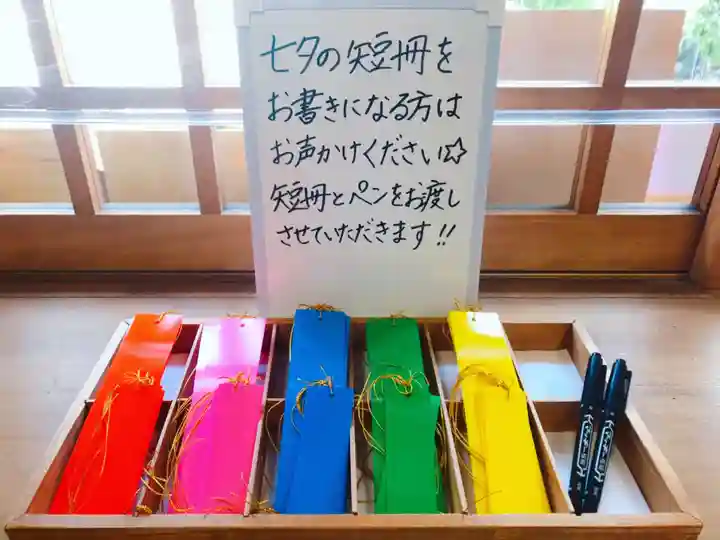 七夕の短冊を
お書きになる方は
お声かけください☆
短冊とペンをお渡し
させていただきます!!